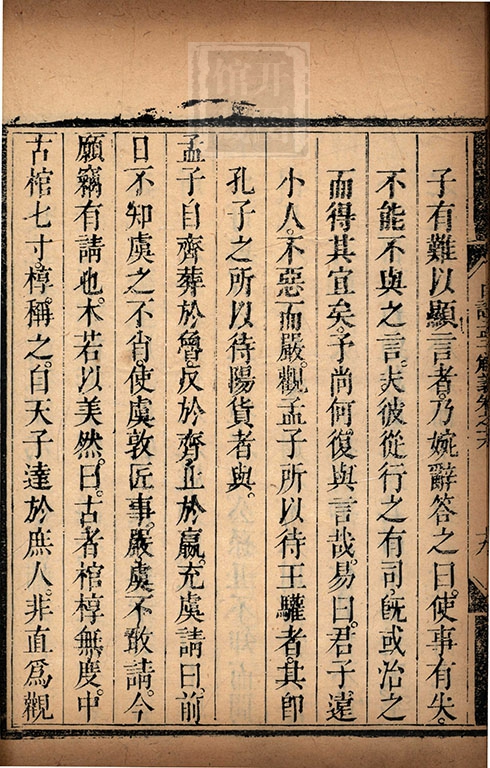 子有難以顯言者。乃婉辭答之曰。使事有失。
不能不與之言。夫彼從行之有司。旣或治之
而得其宜矣。予尚何復與言哉。易曰。君子遠
小人。不惡而嚴。觀孟子所以待王驩者。其卽
孔子之所以待陽貨者與。
孟子自齊葬於魯。反於齊。止於嬴。充虞請曰。前
日不知虞之不肖。使虞敦匠事。嚴虞不敢請。今
願竊有請也。木若以美然。曰。古者棺椁無度。中
古棺七寸。椁稱之。自天子達於庶人。非直爲觀